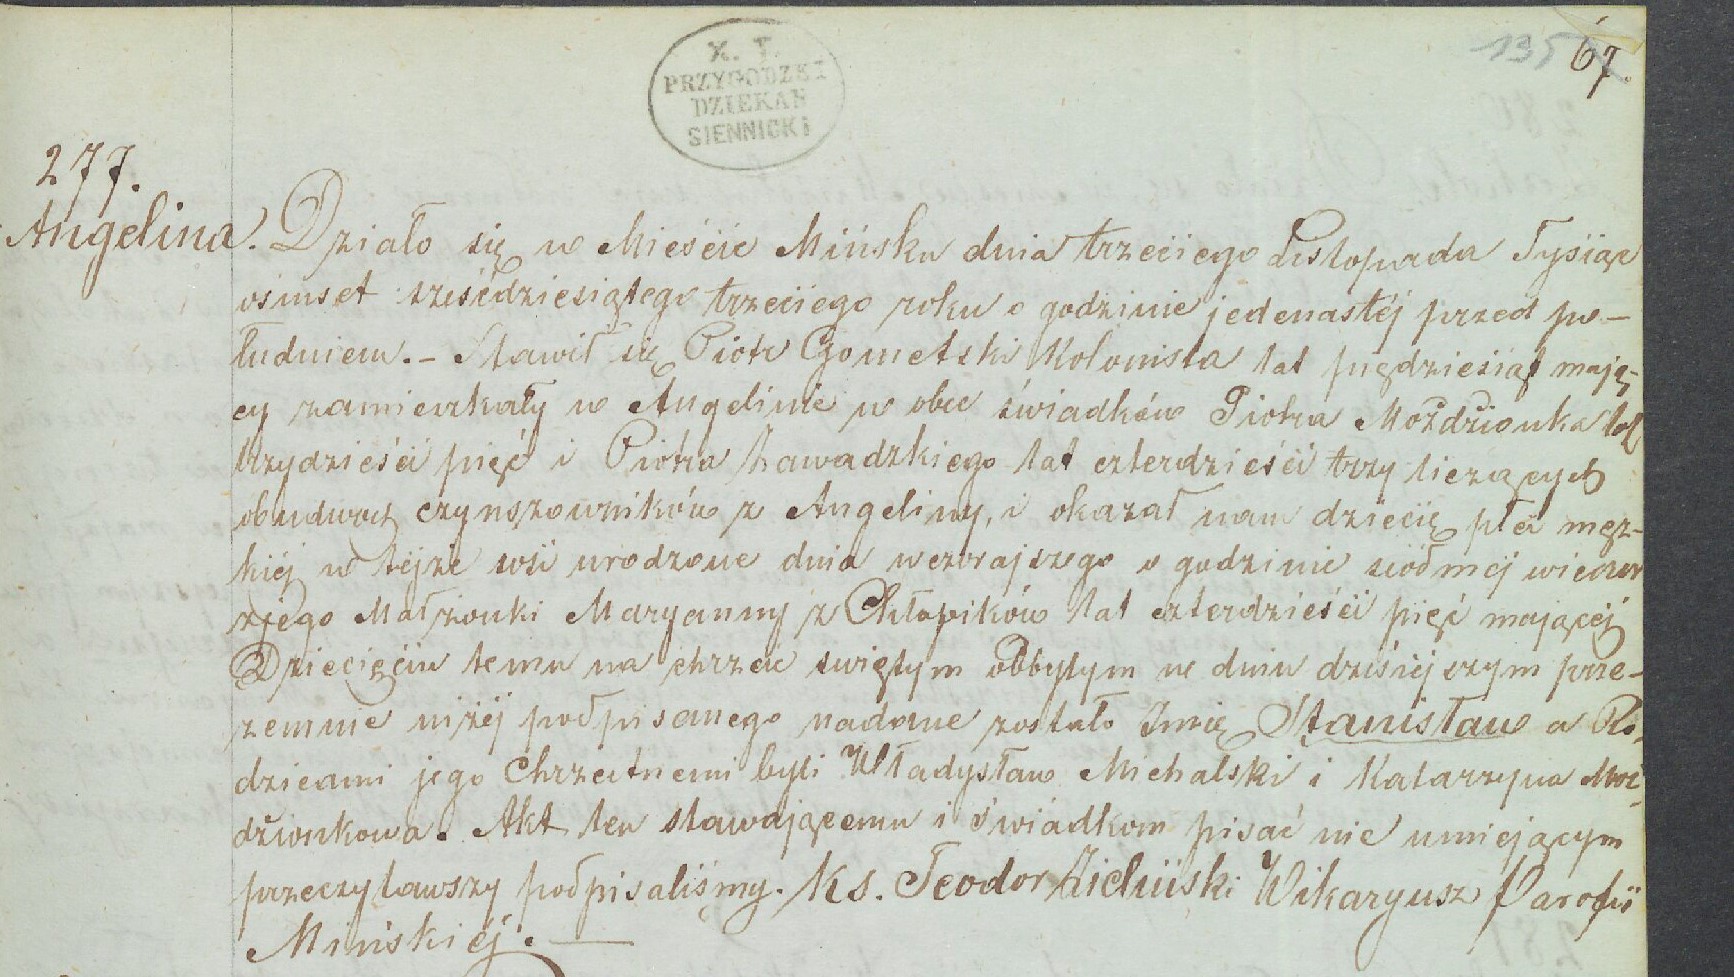 X. T.
PRZYGODZKI
DZIEKAN
SIENNICKI
135
67.
277.
Angelina.
Działo się w Mieście Mińsku dnia trzeciego Listopada Tysiąc
ośmset sześćdziesiątego trzeciego roku o godzinie jedenastéj przed po-
łudniem. – Stawił się Piotr Gometski Kolonista lat pięćdziesiąt mają-
cy zamieszkały w Angelinie w obec świadków Piotra Moździonka lat
trzydzieści pięć i Piotra Zawadzkiego lat czterdzieści trzy liczących
obudwuch czynszowników z Angeliny, i okazał nam dziecię płci męz-
kiéj w téjże wsi urodzone dnia wczorajszego o godzinie siódméj wieczor
z jego Małżonki Maryanny z Chłopików lat czterdzieści pięć mającéj
Dziecięciu temu na chrzcie świętym odbytym w dniu dzisiéjszym prze-
zemnie niżéj podpisanego nadane zostało Imię Stanisław a Ro-
dzicami jego Chrzestnemi byli Władysław Michalski i Katarzyna Moź-
dzionkowa. Akt ten stawającemu i świadkom pisać nie umiejącym
przeczytawszy podpisaliśmy. Ks. Teodor Zieliński Wikaryusz Parafii
Mińskiéj. —